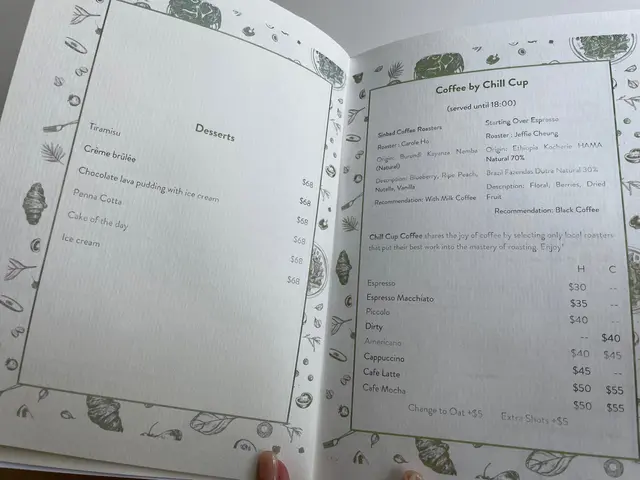 Desserts
Tiramisu $68
Crème brûlée $68
Chocolate lava pudding with ice cream $68
Penna Cotta $68
Cake of the day $68
Ice cream $68
Coffee by Chill Cup
(served until 18:00)
Sinbad Coffee Roasters
Roaster : Carole Ho
Origin: Burundi Kayanza Nemba
(Natural)
Description: Blueberry, Ripe Peach,
Nutella, Vanilla
Recommendation: With Milk Coffee
Starting Over Espresso
Roaster : Jeffie Cheung
Origin: Ethiopia Kochoria HAMA
Natural 70%
Brazil Fazendas Dutra Natural 30%
Description: Floral, Berries, Dried
Fruit
Recommendation: Black Coffee
Chill Cup Coffee shares the joy of coffee by selecting only local roasters
that put their best work into the mastery of roasting. Enjoy!
H C
Espresso $30 --
Espresso Macchiato $35 --
Piccolo $40 --
Dirty -- $40
Americano $40 $45
Cappuccino $45 --
Cafe Latte $50 $55
Cafe Mocha $50 $55
Change to Oat +$5 Extra Shots +$5